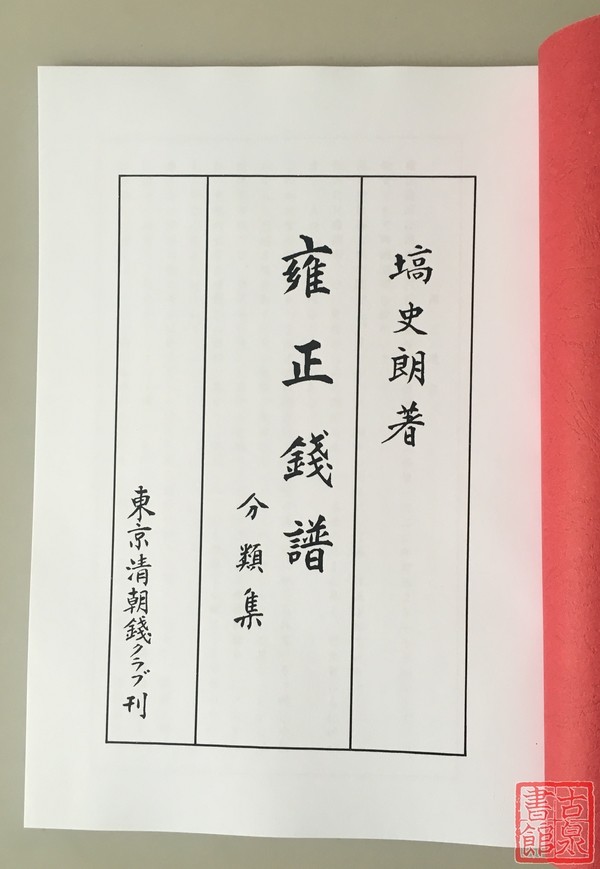 塙史朗著
雍正錢譜
分類集
東京清朝錢クラブ刊
古泉
書館